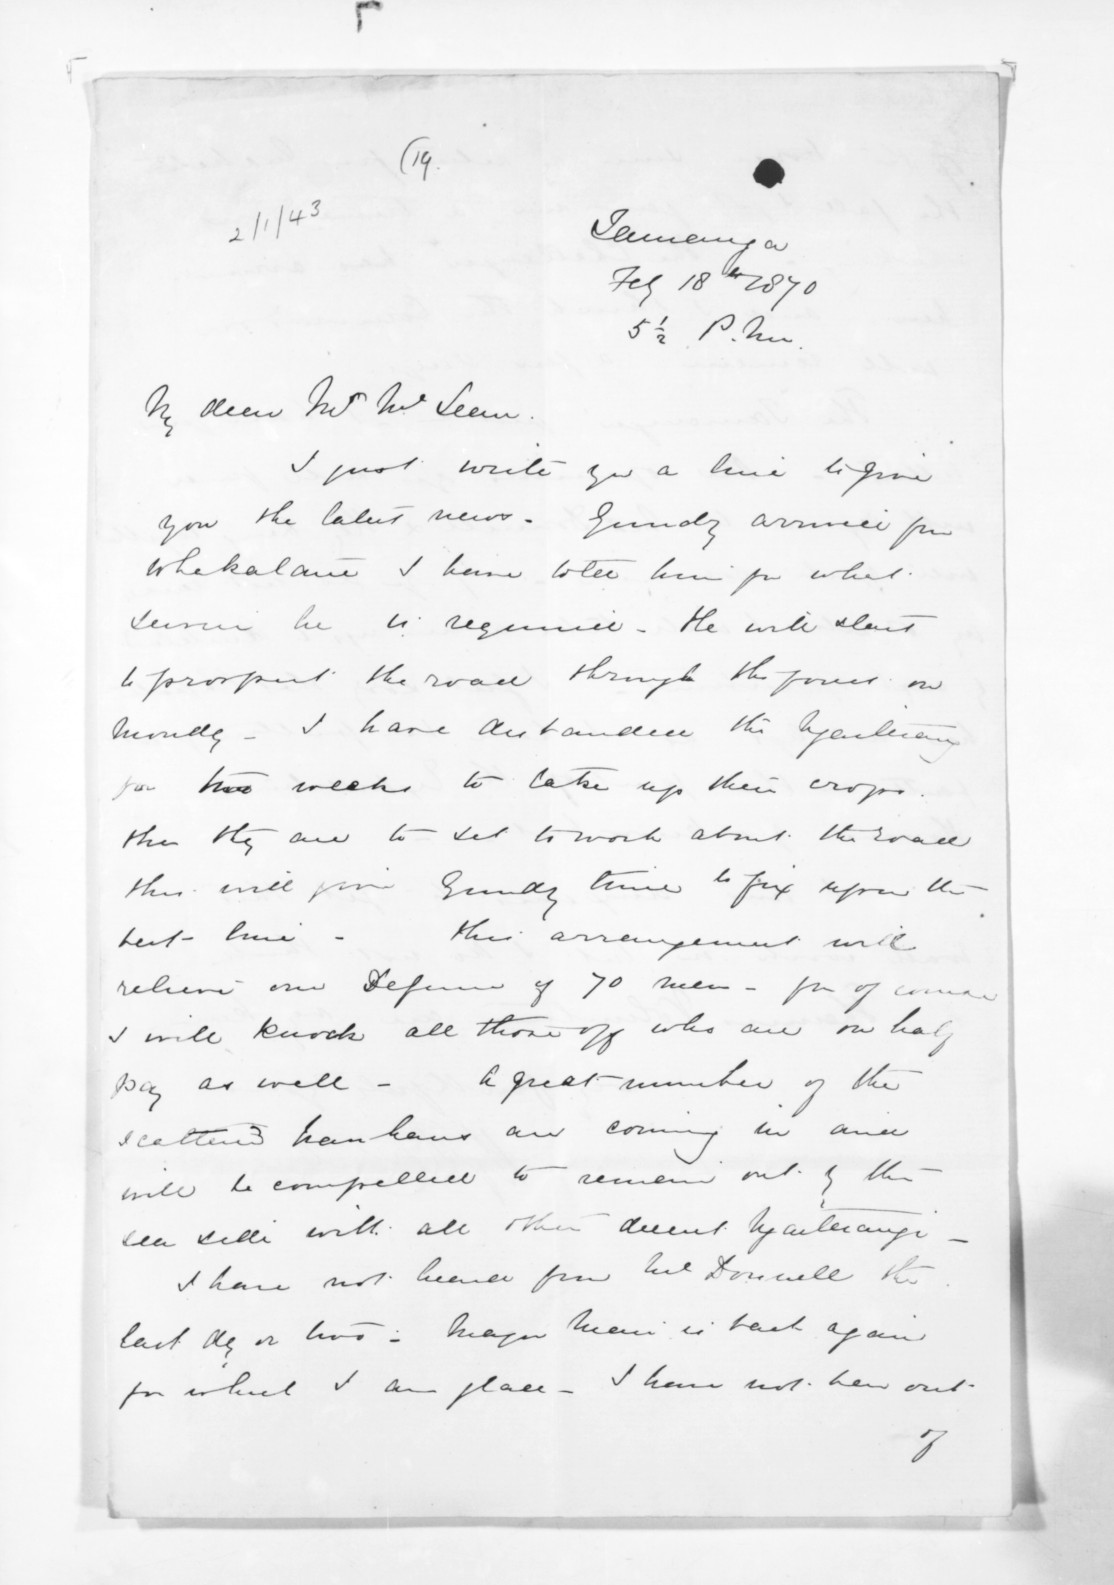 (19.
2/1/43
Tauranga
Feby 18th 1870
5½ P.M.
My dear Mr McLean.
I just write you a line to give
you the latest news - Gundry arrived from
Whakatane I have told him for what
service he is required - He will start
to prospect the road through the forest on
Monday - I have disbanded the Ngaiterangi
for two weeks to take up their crops.
then they are to set to work about the road
this will give Gundry time to fix upon the
best line - this arrangement will
relieve our Defence of 70 men - for of course
I will knock all those off who are on half
pay as well - A great number of the
scattered hauhaus are coming in and
will be compelled to remain out by the
sea side with all other decent Ngaiterangi -
I have not heard from McDonnell the
last day or two - Major Mair is back again
for which I am glad - I have not been out
of